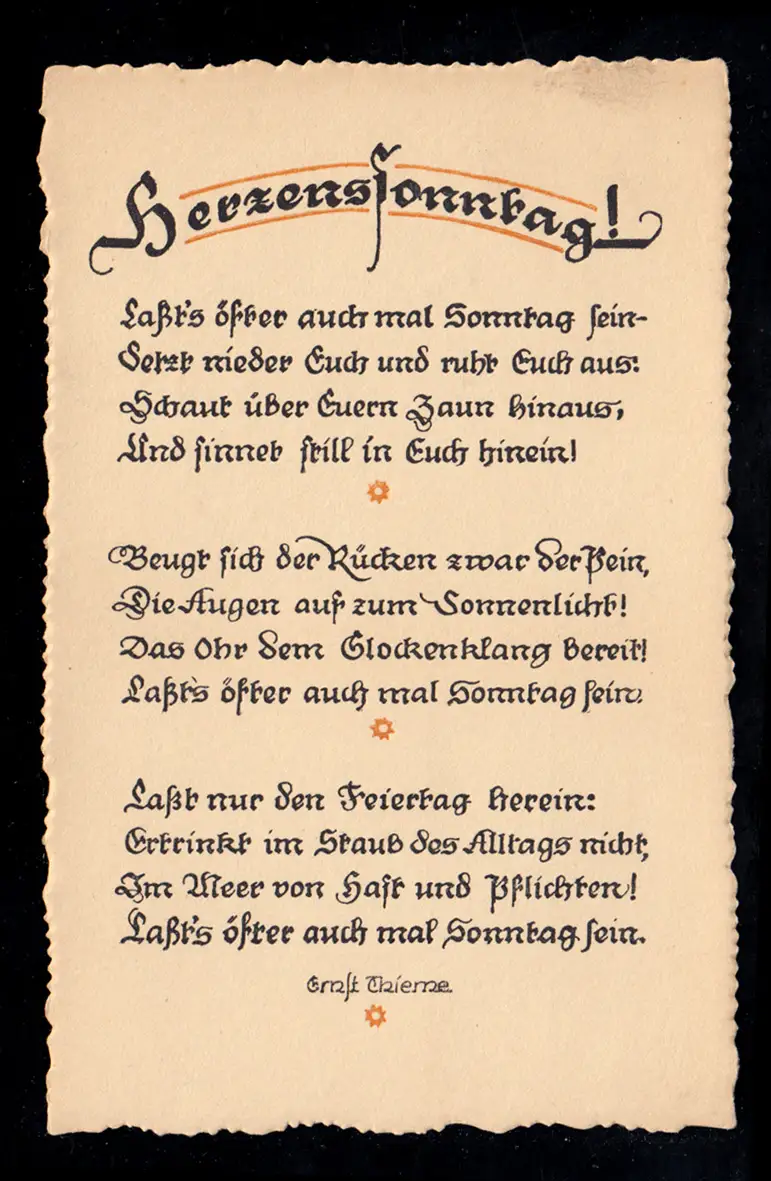 Herzenssonntag!
Laßt's öfter auch mal Sonntag sein-
Setzt nieder Euch und ruht Euch aus:
Schaut über Euern Zaun hinaus,
Und sinnet still in Euch hinein!
Beugt sich der Rücken zwar der Pein,
Die Augen auf zum Sonnenlicht!
Das Ohr dem Glockenklang bereit!
Laßt's öfter auch mal Sonntag sein.
Laßt nur den Feiertag herein:
Ertrinkt im Staub des Alltags nicht,
Im Meer von Hast und Pflichten!
Laßt's öfter auch mal Sonntag sein.
Ernst Thieme.